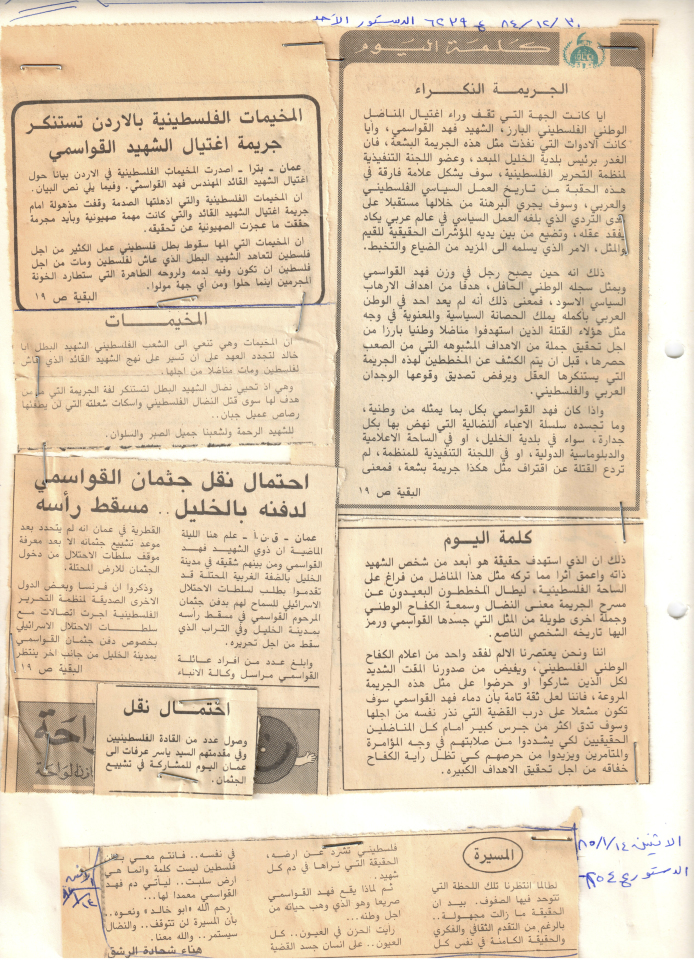 الدستور الأحد ٣٠/١٢/٨٤ ع ٦٢٣٩
كلمة اليوم
الجريمة النكراء
ايا كانت الجهة التي تقف وراء اغتيال المناضل
الوطني الفلسطيني البارز، الشهيد فهد القواسمي، وايا
كانت الادوات التي نفذت مثل هذه الجريمة البشعة، فان
الغدر برئيس بلدية الخليل المبعد، وعضو اللجنة التنفيذية
لمنظمة التحرير الفلسطينية، سوف يشكل علامة فارقة في
هذه الحقبة من تاريخ العمل السياسي الفلسطيني
والعربي، وسوف يجري البرهنة من خلالها مستقبلا على
مدى التردي الذي بلغه العمل السياسي في عالم عربي يكاد
يفقد عقله، وتضيع من بين يديه المؤشرات الحقيقية للقيم
والمثل، الامر الذي يسلمه الى المزيد من الضياع والتخبط.
ذلك انه حين يصبح رجل في وزن فهد القواسمي
وبمثل سجله الوطني الحافل، هدفا من اهداف الارهاب
السياسي الاسود، فمعنى ذلك انه لم يعد احد في الوطن
العربي بأكمله يملك الحصانة السياسية والمعنوية في وجه
مثل هؤلاء القتلة الذين استهدفوا مناضلا وطنيا بارزا من
اجل تحقيق جملة من الاهداف المشبوهه التي من الصعب
حصرها، قبل ان يتم الكشف عن المخططين لهذه الجريمة
التي يستنكرها العقل ويرفض تصديق وقوعها الوجدان
العربي والفلسطيني.
واذا كان فهد القواسمي بكل بما يمثله من وطنية،
وما تجسده سلسلة الاعباء النضالية التي نهض بها بكل
جدارة، سواء في بلدية الخليل، او في الساحة الاعلامية
والدبلوماسية الدولية، او في اللجنة التنفيذية للمنظمة، لم
تردع القتلة عن اقتراف مثل هكذا جريمة بشعة، فمعنى
البقية ص ١٩
كلمة اليوم
ذلك ان الذي استهدف حقيقة هو أبعد من شخص الشهيد
ذاته واعمق أثرا مما تركه مثل هذا المناضل من فراغ على
الساحة الفلسطينية، ليطال المخططون البعيدون عن
مسرح الجريمة معنى النضال وسمعة الكفاح الوطني
وجملة اخرى طويلة من المثل التي جسدها القواسمي ورمز
اليها تاريخه الشخصي الناصع.
اننا ونحن يعتصرنا الالم لفقد واحد من اعلام الكفاح
الوطني الفلسطيني، ويفيض من صدورنا المقت الشديد
لكل الذين شاركوا او حرضوا على مثل هذه الجريمة
المروعة، فاننا لعلى ثقة تامة بأن دماء فهد القواسمي سوف
تكون مشعلا على درب القضية التي نذر نفسه من اجلها
وسوف تدق اكثر من جرس كبير امام كل المناضلين
الحقيقيين لكي يشددوا من صلابتهم في وجه المؤامرة
والمتآمرين ويزيدوا من حرصهم كي تظل راية الكفاح
خفاقه من اجل تحقيق الاهداف الكبيره.
المخيمات الفلسطينية بالاردن تستنكر
جريمة اغتيال الشهيد القواسمي
عمان - بترا - اصدرت المخيمات الفلسطينية في الاردن بياناً حول
اغتيال الشهيد القائد المهندس فهد القواسمي، وفيما يلي نص البيان.
ان المخيمات الفلسطينية والتي اذهلتها الصدمة وقفت مذهولة امام
جريمة اغتيال الشهيد القائد والتي كانت مهمة صهيونية وبأيد مجرمة
حققت ما عجزت الصهيونية عن تحقيقه.
ان المخيمات التي المها سقوط بطل فلسطيني عمل الكثير من اجل
فلسطين لتعاهد الشهيد البطل الذي عاش لفلسطين ومات من اجل
فلسطين ان تكون وفيه لدمه ولروحه الطاهرة التي ستطارد الخونة
المجرمين اينما حلوا ومن أي جهة مولوا.
البقية ص ١٩
المخيمات
ان المخيمات وهي تنعي الى الشعب الفلسطيني الشهيد البطل ابا
خالد لتجدد العهد على ان تسير على نهج الشهيد القائد الذي عاش
لفلسطين ومات مناضلا من اجلها.
وهي اذ تحيي نضال الشهيد البطل تستنكر لغة الجريمة التي
هدف لها سوى قتل النضال الفلسطيني واسكات شعلته التي لن يطفئها
رصاص عميل جبان..
للشهيد الرحمة ولشعبنا جميل الصبر والسلوان.
احتمال نقل جثمان القواسمي
لدفنه بالخليل.. مسقط رأسه
عمان - ق.ن.ا - علم هنا الليلة
الماضية ان ذوي الشهيد فهد
القواسمي ومن بينهم شقيقه في مدينة
الخليل بالضفة الغربية المحتلة قد
تقدموا بطلب لسلطات الاحتلال
الاسرائيلي للسماح لهم بدفن جثمان
المرحوم القواسمي في مسقط رأسه
بمدينة الخليل وفي التراب الذي
سقط من اجل تحريره.
وابلغ عدد من افراد عائلة
القواسمي مراسل وكالة الانباء
القطرية في عمان انه لم يتحدد بعد
موعد تشييع جثمانه الا بعد معرفة
موقف سلطات الاحتلال من دخول
الجثمان للارض المحتلة.
وذكروا ان فرنسا وبعض الدول
الاخرى الصديقة لمنظمة التحرير
الفلسطينية اجرت اتصالات مع
سلطات الاحتلال الاسرائيلي
بخصوص دفن جثمان القواسمي
بمدينة الخليل من جانب اخر ينتظر
البقية ص ١٩
احتمال نقل
وصول عدد من القادة الفلسطينيين
وفي مقدمتهم السيد ياسر عرفات الى
عمان اليوم للمشاركة في تشييع
الجثمان.
الاثنين ٨٥/١/١٤
الدستور ع
المسيرة
لطالما انتظرنا تلك اللحظة التي
تتوحد فيها الصفوف. بيد ان
الحقيقة ما زالت مجهولة..
بالرغم من التقدم الثقافي والفكري
والحقيقة الكامنة في نفس كل
فلسطيني تشرد عن ارضه،
الحقيقة التي نراها في دم كل
شهيد.
ثم لماذا يقع فهد القواسمي
صريعا وهو الذي وهب حياته من
اجل وطنه...
رأيت الحزن في العيون.. كل
العيون.. على انسان جسد القضية
في نفسه.. فانتم معي بأن
فلسطين ليست كلمة وانما هي
ارض سلبت.. ليأتي دم فهد
القواسمي معمدا لها...
رحم الله «ابو خالد» ونعوه..
بأن المسيرة لن تتوقف.. والنضال
سيستمر.. والله معنا.
هناء شحادة الرشق